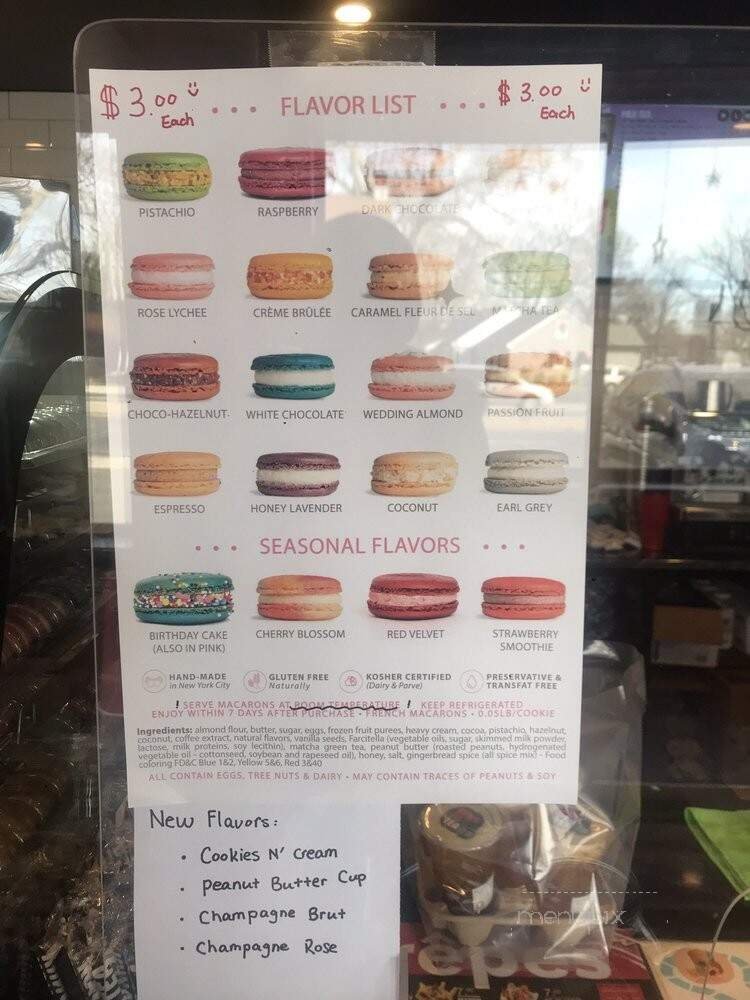 $3.00 Each
• • • FLAVOR LIST • • •
$3.00 Each
PISTACHIO RASPBERRY DARK CHOCOLATE
ROSE LYCHEE CRÈME BRÛLÉE CARAMEL FLEUR DE SEL MATCHA TEA
CHOCO-HAZELNUT WHITE CHOCOLATE WEDDING ALMOND PASSION FRUIT
ESPRESSO HONEY LAVENDER COCONUT EARL GREY
• • • SEASONAL FLAVORS • • •
BIRTHDAY CAKE CHERRY BLOSSOM RED VELVET STRAWBERRY
(ALSO IN PINK) SMOOTHIE
HAND-MADE GLUTEN FREE KOSHER CERTIFIED PRESERVATIVE &
in New York City Naturally (Dairy & Parve) TRANSFAT FREE
! SERVE MACARONS AT ROOM TEMPERATURE ! KEEP REFRIGERATED
ENJOY WITHIN 7 DAYS AFTER PURCHASE • FRENCH MACARONS • 0.05LB/COOKIE
Ingredients: almond flour, butter, sugar, eggs, frozen fruit purees, heavy cream, cocoa, pistachio, hazelnut,
coconut, coffee extract, natural flavors, vanilla seeds, Farcitella (vegetable oils, sugar, skimmed milk powder,
lactose, milk proteins, soy lecithin), matcha green tea, peanut butter (roasted peanuts, hydrogenated
vegetable oil - cottonseed, soybean and rapeseed oil), honey, salt, gingerbread spice (all spice mix) - Food
coloring FD&C Blue 1&2, Yellow 5&6, Red 3&40
ALL CONTAIN EGGS, TREE NUTS & DAIRY • MAY CONTAIN TRACES OF PEANUTS & SOY
New Flavors:
• Cookies N' cream
• peanut Butter Cup
• Champagne Brut
• Champagne Rose